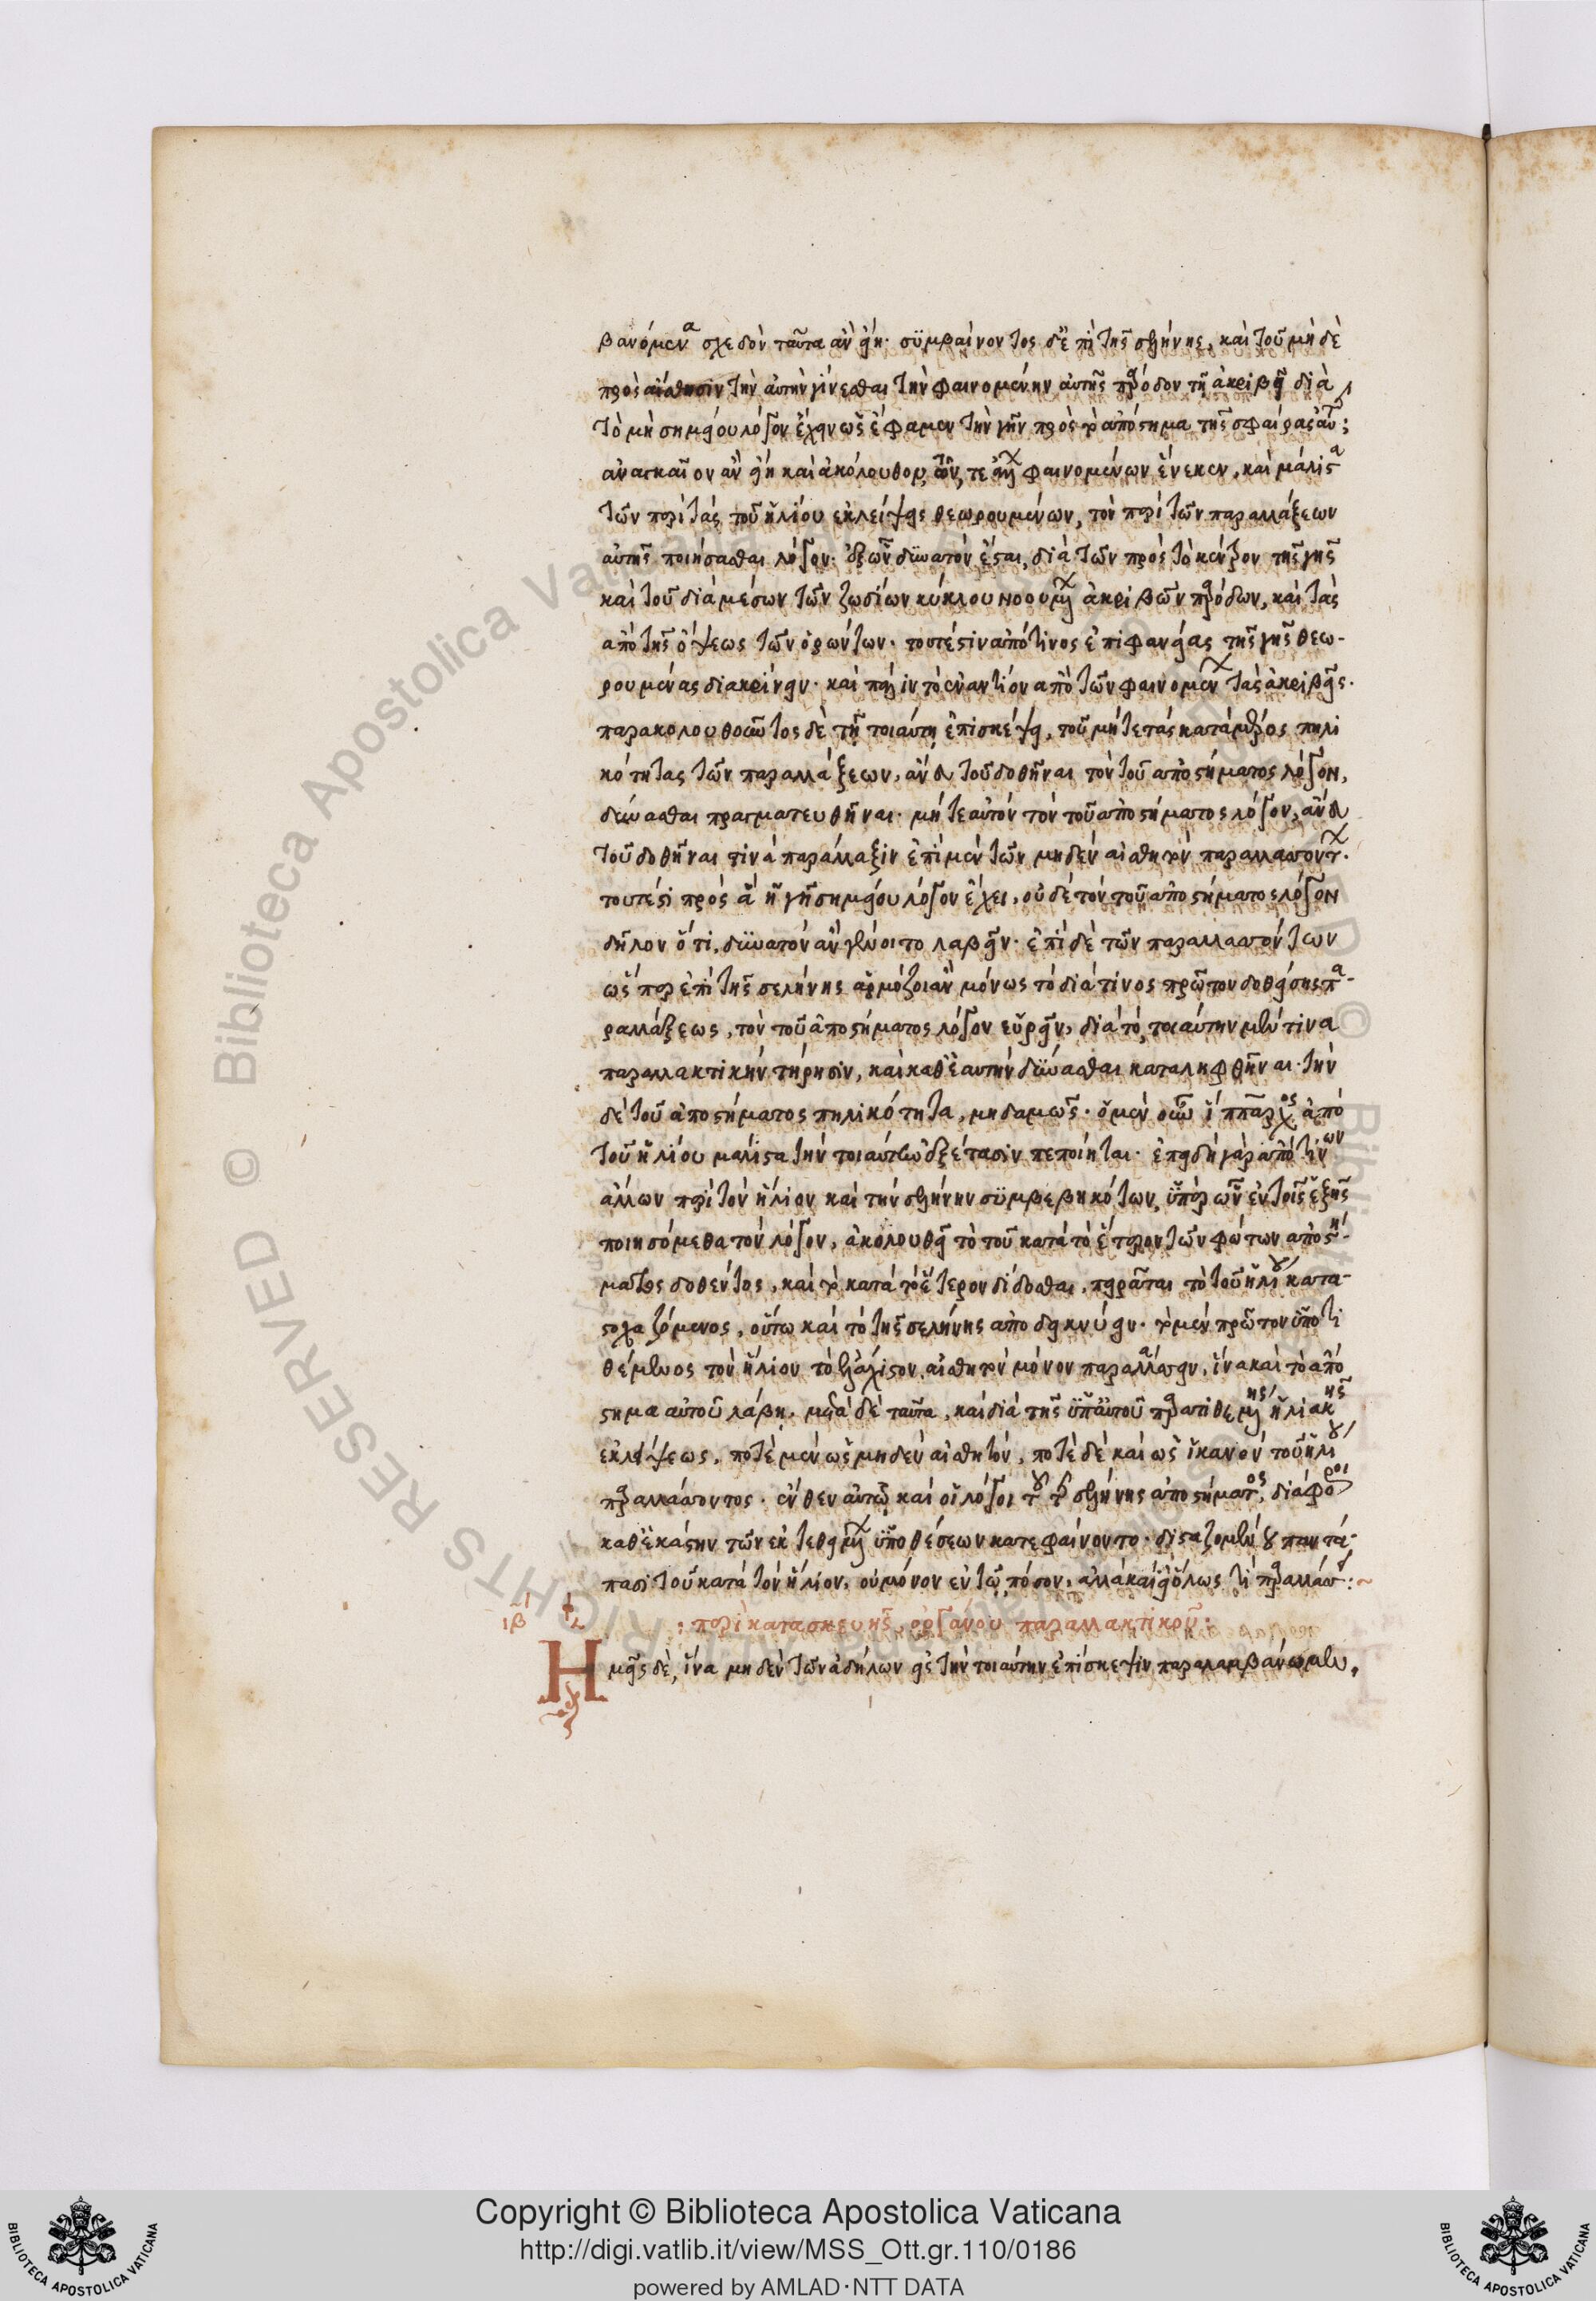 βανόμενα σχεδὸν ταῦτα ἂν εἴη· συμβαίνοντος δὲ ἐπὶ τῆς σελήνης, καὶ τοῦ μὴ δὲ
πρὸς αἴσθησιν τὴν αὐτὴν γίνεσθαι τὴν φαινομένην αὐτῆς πάροδον τῇ ἀκριβεῖ διὰ
τὸ μὴ σημείου λόγον ἔχειν ὡς ἔφαμεν τὴν γῆν πρὸς τὸ ἀπόστημα τῆς σφαίρας αὐτῆς·
ἀναγκαῖον ἂν εἴη καὶ ἀκόλουθον, τῶν τε ἄλλων φαινομένων ἕνεκεν, καὶ μάλιστα
τῶν περὶ τὰς τοῦ ἡλίου ἐκλείψεις θεωρουμένων, τὸν περὶ τῶν παραλλάξεων
αὐτῆς ποιήσασθαι λόγον· ἐξ ὧν δυνατὸν ἔσται, διὰ τῶν πρὸς τὸ κέντρον τῆς γῆς
καὶ τοῦ διὰ μέσων τῶν ζῳδίων κύκλου νοουμένων ἀκριβῶν παρόδων, καὶ τὰς
ἀπὸ τῆς ὄψεως τῶν ὁρώντων· τουτέστιν ἀπό τινος ἐπιφανείας τῆς γῆς θεω-
ρουμένας διακρίνειν· καὶ πάλιν τὸ ἐναντίον ἀπὸ τῶν φαινομένων τὰς ἀκριβεῖς.
παρακολουθοῦντος δὲ τῇ τοιαύτῃ ἐπισκέψει, τοῦ μήτε τὰς κατὰ μέρος πηλι
κότητας τῶν παραλλάξεων, ἄνευ τοῦ δοθῆναι τὸν τοῦ ἀποστήματος λόγον,
δύνασθαι πραγματευθῆναι· μήτε αὐτὸν τὸν τοῦ ἀποστήματος λόγον, ἄνευ
τοῦ δοθῆναι τινὰ παράλλαξιν ἐπὶ μὲν τῶν μηδὲν αἰσθητὸν παραλλασσόντων·
τουτέστι πρὸς ἃ ἡ γῆ σημείου λόγον ἔχει, οὐδὲ τὸν τοῦ ἀποστήματος λόγον
δῆλον ὅτι, δυνατὸν ἂν γένοιτο λαβεῖν· ἐπὶ δὲ τῶν παραλλασσόντων
ὥσπερ ἐπὶ τῆς σελήνης ἁρμόζοι ἂν μόνως τὸ διά τινος πρῶτον δοθείσης πα-
ραλλάξεως, τὸν τοῦ ἀποστήματος λόγον εὑρεῖν, διὰ τὸ, τοιαύτην μέν τινα
παραλλακτικὴν τήρησιν, καὶ καθ' ἑαυτὴν δύνασθαι καταληφθῆναι· τὴν
δὲ τοῦ ἀποστήματος πηλικότητα, μηδαμῶς· ὁ μὲν οὖν ἵππαρχος ἀπὸ
τοῦ ἡλίου μάλιστα τὴν τοιαύτην ἐξέτασιν πεποίηται· ἐπειδὴ γὰρ ἀπό τινων
ἄλλων περὶ τὸν ἥλιον καὶ τὴν σελήνην συμβεβηκότων, ὑπὲρ ὧν ἐν τοῖς ἑξῆς
ποιησόμεθα τὸν λόγον, ἀκολουθεῖ τὸ τοῦ κατὰ τὸ ἕτερον τῶν φώτων ἀποστή-
ματος δοθέντος, καὶ τὸ κατὰ τὸ ἕτερον δίδοσθαι, πειρᾶται τὸ τοῦ ἡλίου κατα-
στοχαζόμενος, οὕτω καὶ τὸ τῆς σελήνης ἀποδεικνύειν· τὸ μὲν πρῶτον ὑποτι
θέμενος τὸν ἥλιον τὸ ἐλάχιστον αἰσθητὸν μόνον παραλλάσσειν, ἵνα καὶ τὸ ἀπό
στημα αὐτοῦ λάβῃ. μετὰ δὲ ταῦτα, καὶ διὰ τῆς ὑπ' αὐτοῦ παρατιθεμένης ἡλιακῆς
ἐκλείψεως, ποτὲ μὲν ὡς μηδὲν αἰσθητὸν, ποτὲ δὲ καὶ ὡς ἱκανὸν τοῦ ἡλίου
παραλλάσσοντος. ἔνθεν αὐτῷ καὶ οἱ λόγοι τοῦ τῆς σελήνης ἀποστήματος, διάφοροι
καθ' ἑκάστην τῶν ἐκτεθειμένων ὑποθέσεων κατεφαίνοντο· δισταζομένου παντά-
πασι τοῦ κατὰ τὸν ἥλιον, οὐ μόνον ἐν τῷ πόσον, ἀλλὰ καὶ εἰ ὅλως τι παραλλάσσει:~
ιβ :περὶ κατασκευῆς ὀργάνου παραλλακτικοῦ:
Ἡμεῖς δὲ, ἵνα μηδὲν τῶν ἀδήλων εἰς τὴν τοιαύτην ἐπίσκεψιν παραλαμβάνωμεν,
© Biblioteca Apostolica Vaticana
RIGHTS RESERVED
Copyright © Biblioteca Apostolica Vaticana
http://digi.vatlib.it/view/MSS_Ott.gr.110/0186
powered by AMLAD·NTT DATA
BIBLIOTECA APOSTOLICA VATICANA
BIBLIOTECA APOSTOLICA VATICANA